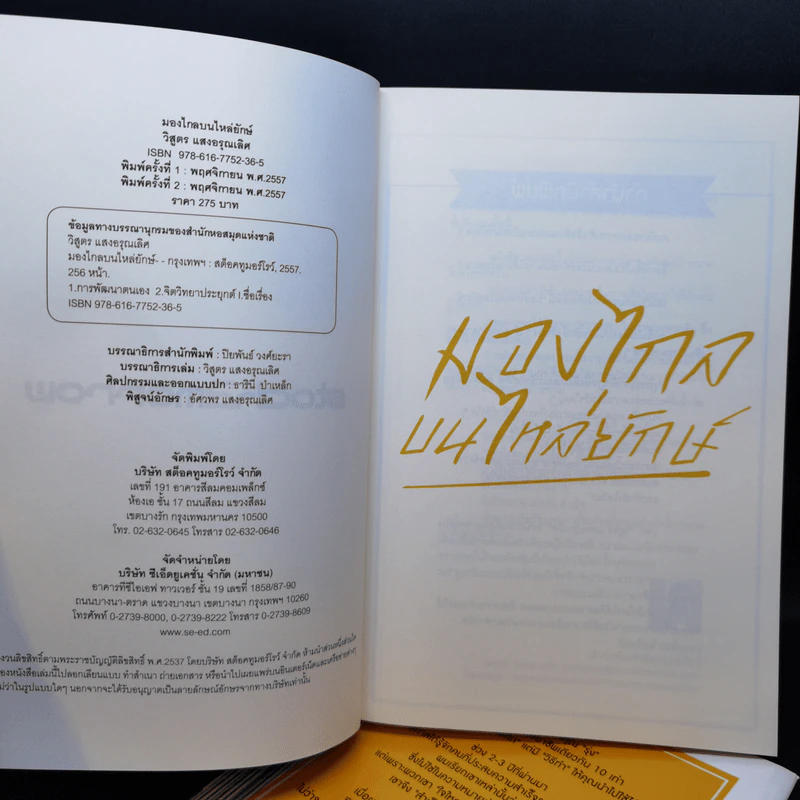 มองไกลบนไหล่ยักษ์
วิสูตร แสงอรุณเลิศ
ISBN 978-616-7752-36-5
พิมพ์ครั้งที่ 1 : พฤศจิกายน พ.ศ.2557
พิมพ์ครั้งที่ 2 : พฤศจิกายน พ.ศ.2557
ราคา 275 บาท
ข้อมูลทางบรรณานุกรมของสำนักหอสมุดแห่งชาติ
วิสูตร แสงอรุณเลิศ
มองไกลบนไหล่ยักษ์- - กรุงเทพฯ : สต็อคทูมอร์โรว์, 2557.
256 หน้า.
1.การพัฒนาตนเอง 2.จิตวิทยาประยุกต์ I.ชื่อเรื่อง
ISBN 978-616-7752-36-5
บรรณาธิการสำนักพิมพ์ : ปิยพันธ์ วงศ์ยะรา
บรรณาธิการเล่ม : วิสูตร แสงอรุณเลิศ
ศิลปกรรมและออกแบบปก : ธารินี บำเหล็ก
พิสูจน์อักษร : อัศวพร แสงอรุณเลิศ
จัดพิมพ์โดย
บริษัท สต็อคทูมอร์โรว์ จำกัด
เลขที่ 191 อาคารสีลมคอมเพล็กซ์
ห้องเอ ชั้น 17 ถนนสีลม แขวงสีลม
เขตบางรัก กรุงเทพมหานคร 10500
โทร. 02-632-0645 โทรสาร 02-632-0646
จัดจำหน่ายโดย
บริษัท ซีเอ็ดยูเคชั่น จำกัด (มหาชน)
อาคารทีซีไอเอฟ ทาวเวอร์ ชั้น 19 เลขที่ 1858/87-90
ถนนบางนา-ตราด แขวงบางนา เขตบางนา กรุงเทพฯ 10260
โทรศัพท์ 0-2739-8000, 0-2739-8222 โทรสาร 0-2739-8609
www.se-ed.com
งวนลิขสิทธิ์ตามพระราชบัญญัติลิขสิทธิ์ พ.ศ.2537 โดยบริษัท สต็อคทูมอร์โรว์ จำกัด ห้ามนำส่วนหนึ่งส่วนใด
องหนังสือเล่มนี้ไปลอกเลียนแบบ ทำสำเนา ถ่ายเอกสาร หรือนำไปเผยแพร่บนอินเตอร์เน็ตและเครือข่ายต่างๆ
ม่ว่าในรูปแบบใดๆ นอกจากจะได้รับอนุญาตเป็นลายลักษณ์อักษรจากทางบริษัทเท่านั้น
มองไกล
บนไหล่ยักษ์
ชีพเดียวกัน 10 เท่า
แต่มี "วิธีทำ" ให้คุณนำไปใช้
ช่วง 2-3 ปีที่ผ่านมา
ได้รู้จักคนที่ประสบความสำเร็จ
ผมเรียกเขาเหล่านั้นว่า
ซึ่งไม่ใช่ในความหมาย
แต่เพราะพวกเขา
เขาจึง